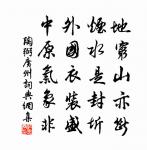 地窮山亦斷
煙水是封圻
外國衣裝盛
中原氣象非
陶弼廣州詞典網集